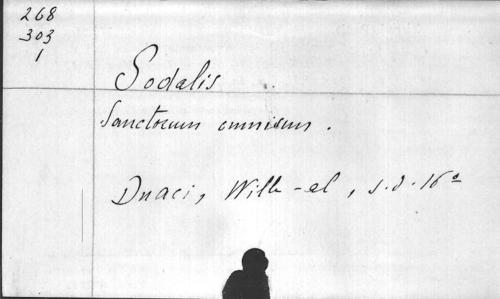 268
303
1
Sodalis
Sanctorum omnium.
Duaci, Wilh-el, s.d. 16°